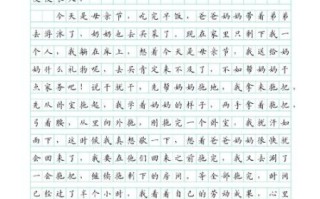 今天是母亲节，吃完早饭，爸爸妈妈带着弟弟
去游泳了，奶奶也去买菜了，现在家里只剩下我一
个人，我躺在床上，想着今天是母亲节，我送给妈
妈什么礼物呢，去买肯定来不及了，不如帮妈妈干
点家务吧！说干就干，先帮妈妈拖地，我拿来拖把，
先从卧室拖起，我学着妈妈的样子，两手拿着拖把，
弓着腰，从里向外拖，刚拖完一个卧室，我就汗如
雨下，这时候我真想歇一下，想着爸爸妈妈很快就
会回来了，我要在他们回来之前拖完，我又去涮了
一会拖把，继续拖剩下的房间，等全部拖完，时间
已经过了半个小时，我看着自己的劳动成果，心里